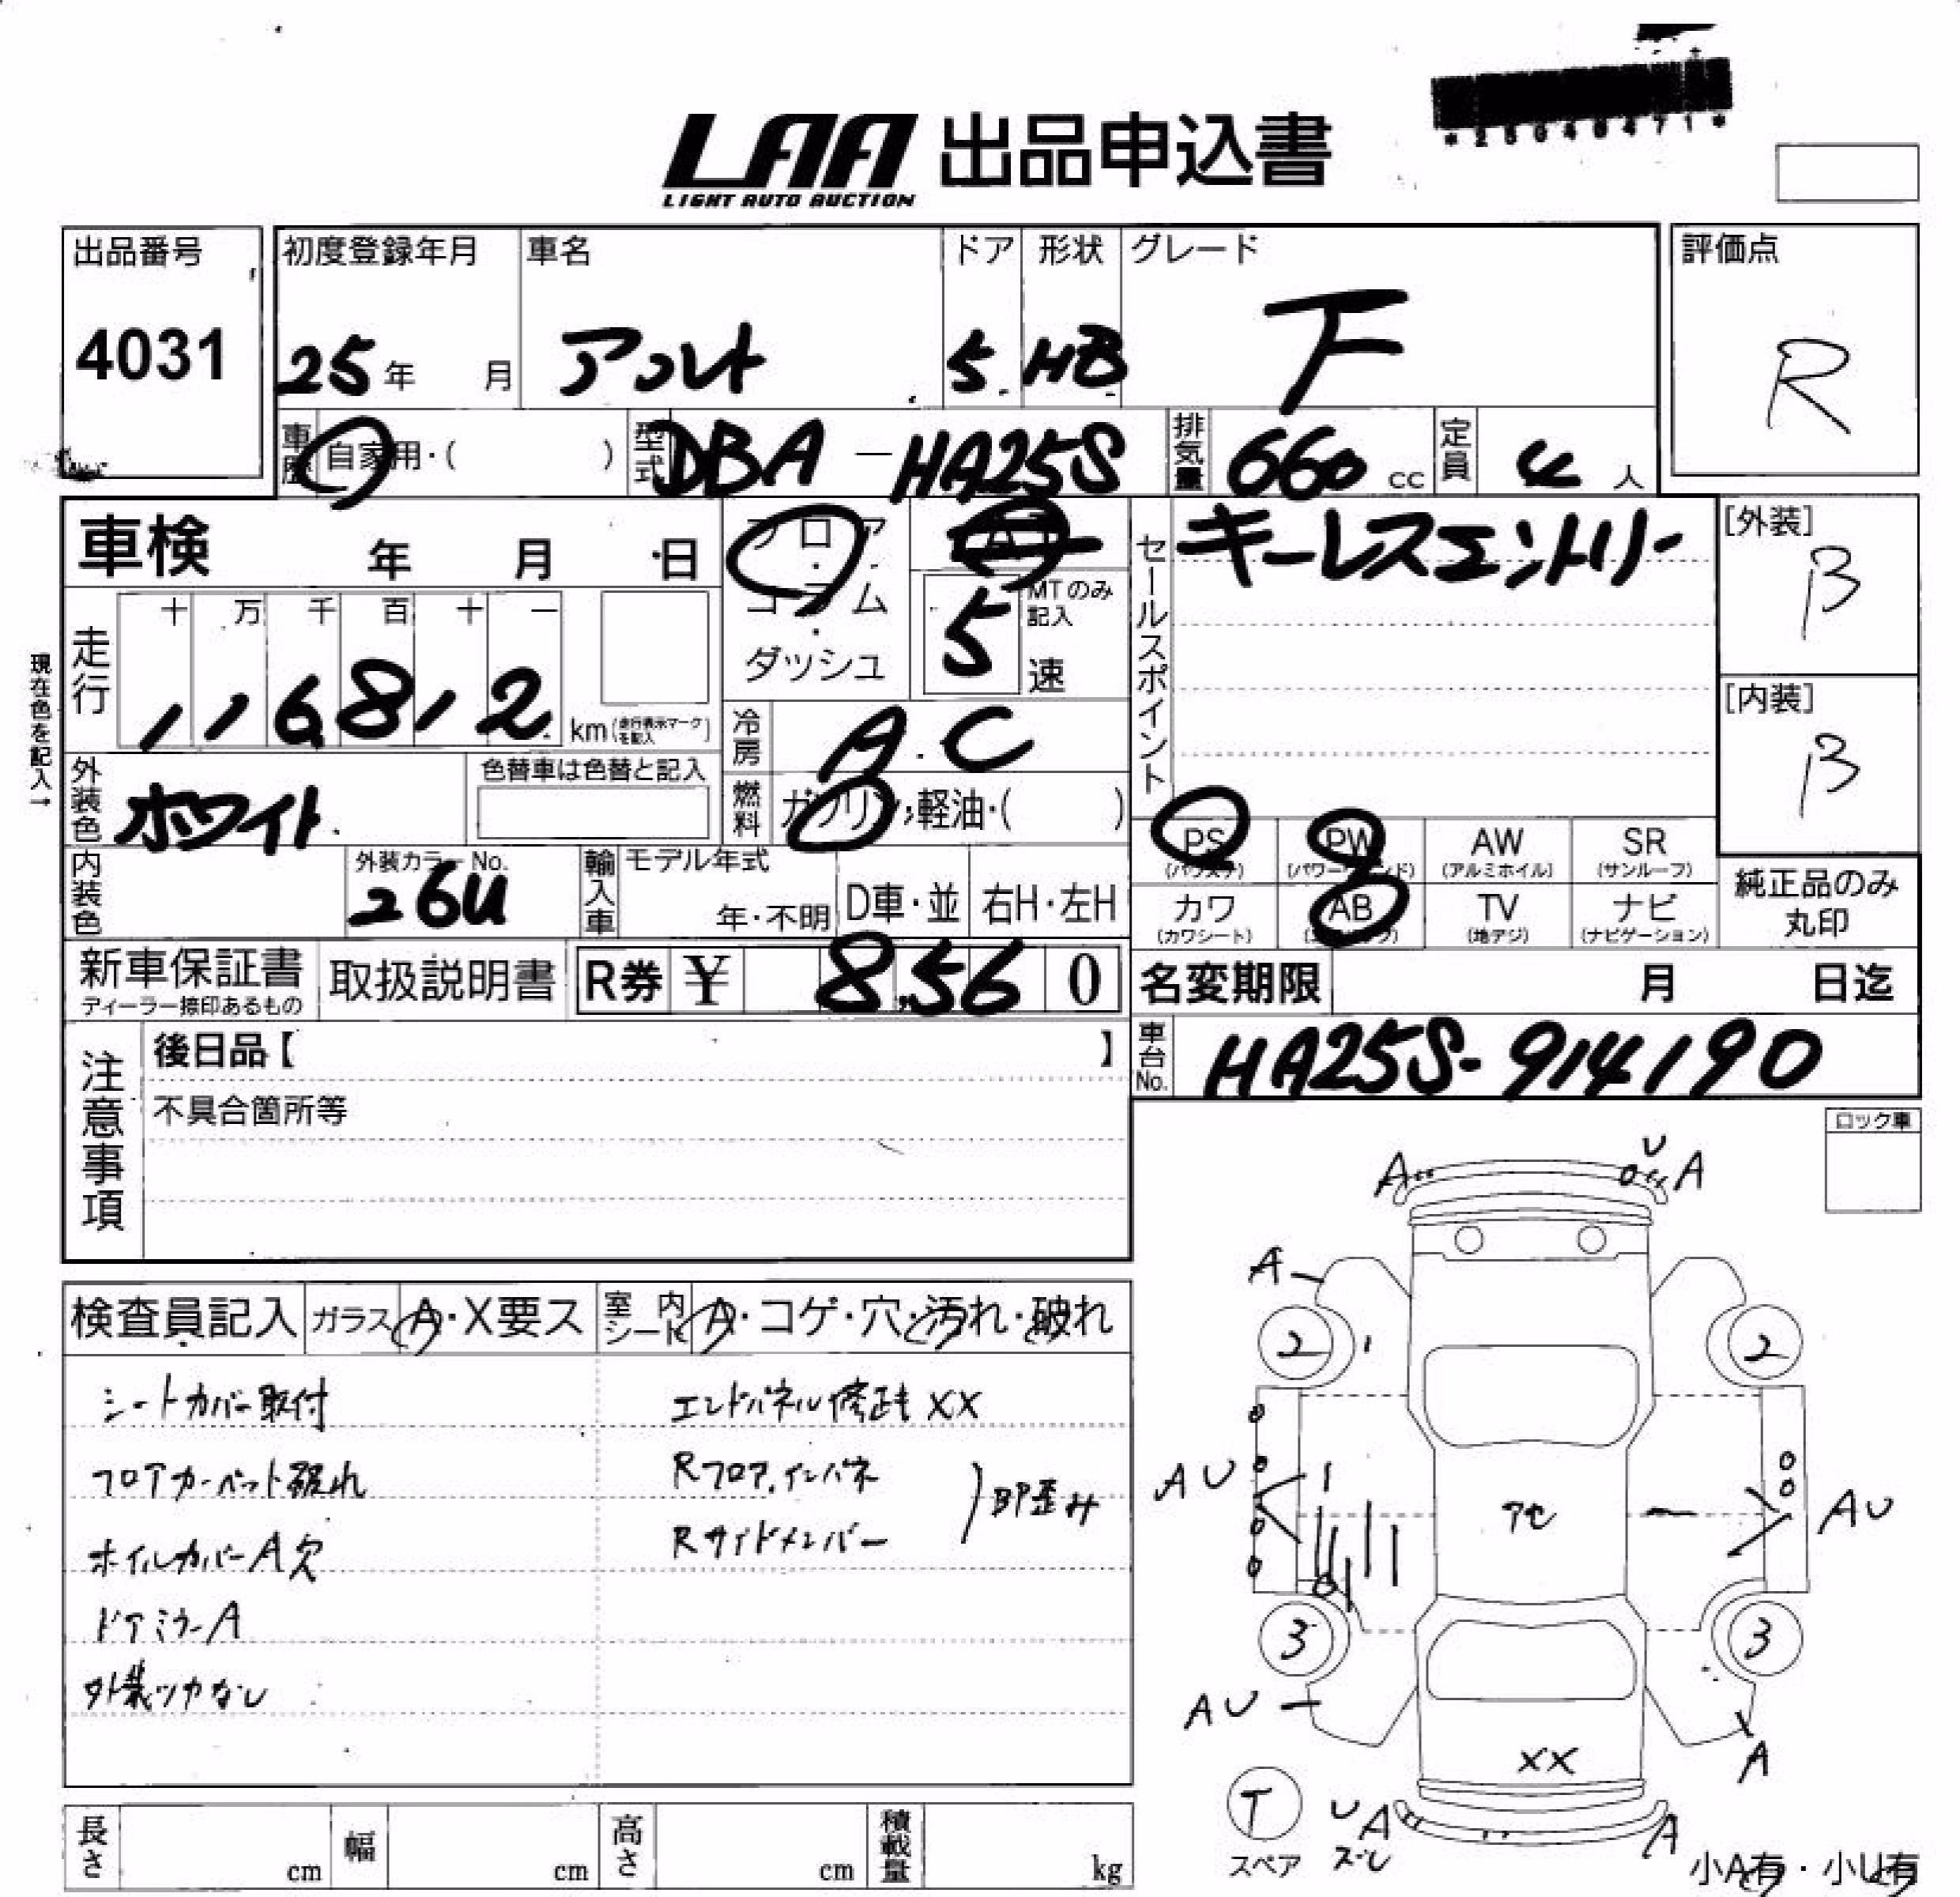 LAA 出品申込書
LIGHT AUTO AUCTION
出品番号
4031
初度登録年月
25年 月
車名
アルト
ドア
5
形状
HB
グレード
F
評価点
R
車歴
自家用・( )
型式
DBA-HA25S
排気量
660 cc
定員
4 人
車検 年 月 日
フロア・コラム・ダッシュ
AT
MTのみ記入
5速
セールスポイント
キーレスエントリー
[外装]
B
[内装]
B
現在色を記入→
走行
十 万 千 百 十 一
1 1 6 8 1 2
km(走行表示マークを記入)
冷房
A.C
燃料
ガソリン・軽油・( )
外装色
ホワイト
色替車は色替と記入
内装色
外装カラーNo.
26U
輸入車
モデル年式
年・不明
D車・並
右H・左H
PS
(パワステ)
PW
(パワーウインド)
AW
(アルミホイル)
SR
(サンルーフ)
カワ
(カワシート)
AB
(エアバッグ)
TV
(地デジ)
ナビ
(ナビゲーション)
純正品のみ
丸印
新車保証書
ディーラー捺印あるもの
取扱説明書
R券 ¥ 8,560
名変期限 月 日迄
車台No.
HA25S-914190
注意事項
後日品【 】
不具合箇所等
ロック車
検査員記入
ガラス A・X要ス
室内シート A・コゲ・穴・汚れ・破れ
シートカバー取付
フロアカーペット破れ
ホイルカバーA欠
ドアミラーA
外装ツヤなし
エンドパネル修正キ XX
Rフロア、インパネ
Rサイドメンバー
即歪み
A U A
A
2 2
AU アセ AU
3 3
AU
XX
A
T
スペア
U A
ズレ
A
小A有・小U有
長さ cm
幅 cm
高さ cm
積載量 kg